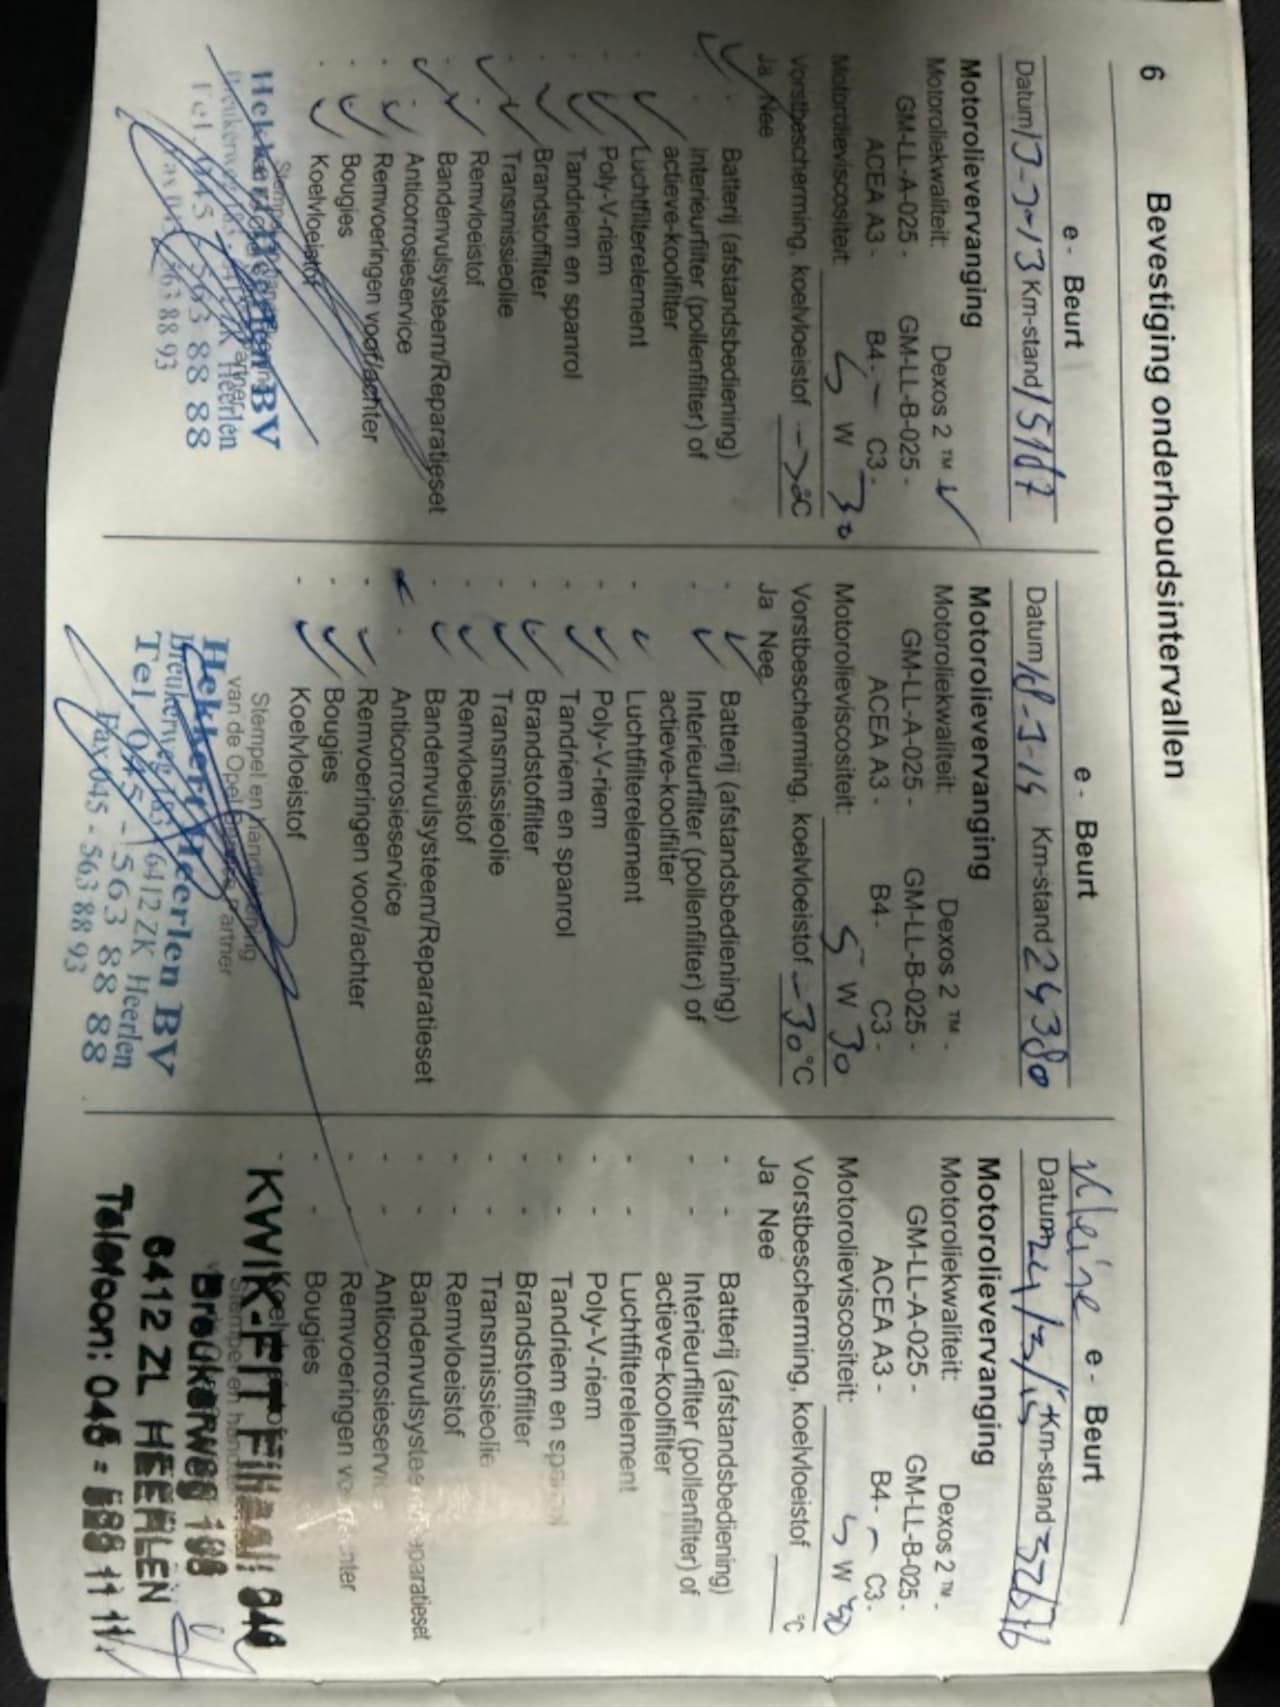 6 Bevestiging onderhoudsintervallen
e - Beurt
Km-stand 15107
Motorolievervanging
Motoroliekwaliteit: Dexos 2 ™
GM-LL-A-025 - GM-LL-B-025 -
ACEA A3 - B4 - C3 -
Motorolieviscositeit: 5 W 30
Vorstbescherming, koelvloeistof
Ja Nee
- Batterij (afstandsbediening)
Interieurfilter (pollenfilter) of
actieve-koolfilter
Luchtfilterelement
Poly-V-riem
Tandriem en spanrol
Brandstoffilter
Transmissieolie
Remvloeistof
Bandenvulsysteem/Reparatieset
Anticorrosieservice
Remvoeringen voor/achter
Bougies
Koelvloeistof
BV
Heerlen
563 88 88
563 88 93
e - Beurt
Km-stand 24380
Motorolievervanging
Motoroliekwaliteit: Dexos 2 ™ -
GM-LL-A-025 - GM-LL-B-025 -
ACEA A3 - B4 - C3 -
Motorolieviscositeit: 5 W 30
Vorstbescherming, koelvloeistof -30 °C
Ja Nee
- Batterij (afstandsbediening)
- Interieurfilter (pollenfilter) of
actieve-koolfilter
- Luchtfilterelement
- Poly-V-riem
- Tandriem en spanrol
- Brandstoffilter
- Transmissieolie
- Remvloeistof
- Bandenvulsysteem/Reparatieset
- Anticorrosieservice
- Remvoeringen voor/achter
- Bougies
- Koelvloeistof
Stempel en
van de Opel
Heerlen BV
6412 ZK Heerlen
Tel 045 - 563 88 88
Fax 045 - 563 88 93
Kleine e - Beurt
Datum 24/3/15 Km-stand 32676
Motorolievervanging
Motoroliekwaliteit: Dexos 2 ™ -
GM-LL-A-025 - GM-LL-B-025 -
ACEA A3 - B4 - C3 -
Motorolieviscositeit: 5 W 30
Vorstbescherming, koelvloeistof °C
Ja Nee
- - Batterij (afstandsbediening)
- - Interieurfilter (pollenfilter) of
actieve-koolfilter
- - Luchtfilterelement
- - Poly-V-riem
- - Tandriem en
- - Brandstoffilter
- - Transmissieolie
- - Remvloeistof
- - Bandenvulsysteem/Reparatieset
- - Anticorrosieservice
- - Remvoeringen
- - Bougies
KWIK-FIT Filiaal:
Breukerweg
6412 ZL HEERLEN
Telefoon: 045 -